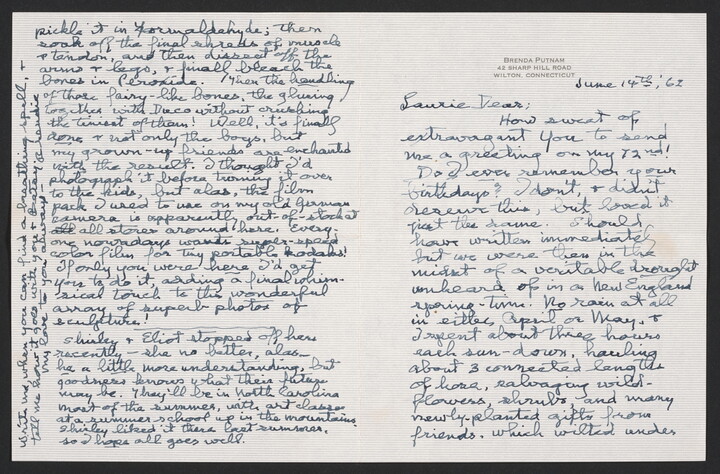 BRENDA PUTNAM
42 SHARP HILL ROAD
WILTON, CONNECTICUT
June 14th, '62
Laurie Dear;
How sweet of
extravagant You to send
me a greeting on my 72nd!
Do I ever remember your
birthdays? I don't, & didn't
deserve this, but loved it
just the same. Should
have written immediately
but we were then in the
midst of a veritable drought
unheard of in a New England
spring-time! No rain at all
in either April or May, &
I spent about three hours
each sun-down, hauling
about 3 connected lengths
of hose, salvaging wild-
flowers, shrubs and many
newly-planted gifts from
friends, which wilted under
pickle it in Formaldahyde; then
soak off the final shreds of muscle
& tendon, and then dissect off the
arms & legs, & finall bleach the
bones in Peroxide. Then the handling
of those fairy-like bones, the gluing
together with Duco without crushing
the tiniest of them! Well, it's finally
done & not only the boys, but
my grown-up friends are enchanted
with the result. I thought I'd
photograph it before turning it over
to the kids, but alas, the film
pack I used to use on my old German
camera is apparently out-of-stock at
all stores around here. Every-
one nowadays wants super-speed
color film for tiny portable kodaks!
If only you were here I'd get
you to do it, adding a final whim-
sical touch to this wonderful
array of superb photos of
sculpture!
Shirley & Eliot stopped off here
recently – she no better, alas–
he a little more understanding, but
goodness knows what their future
may be. They'll be in North Carolina
most of the summer, with art classes
at a summer-school up in the mountains.
Shirley liked it there last summer,
so I hope all goes well.
Write me, when you can find a breathing spell, &
tell me how it goes with you & Betsey &
my love to you always!